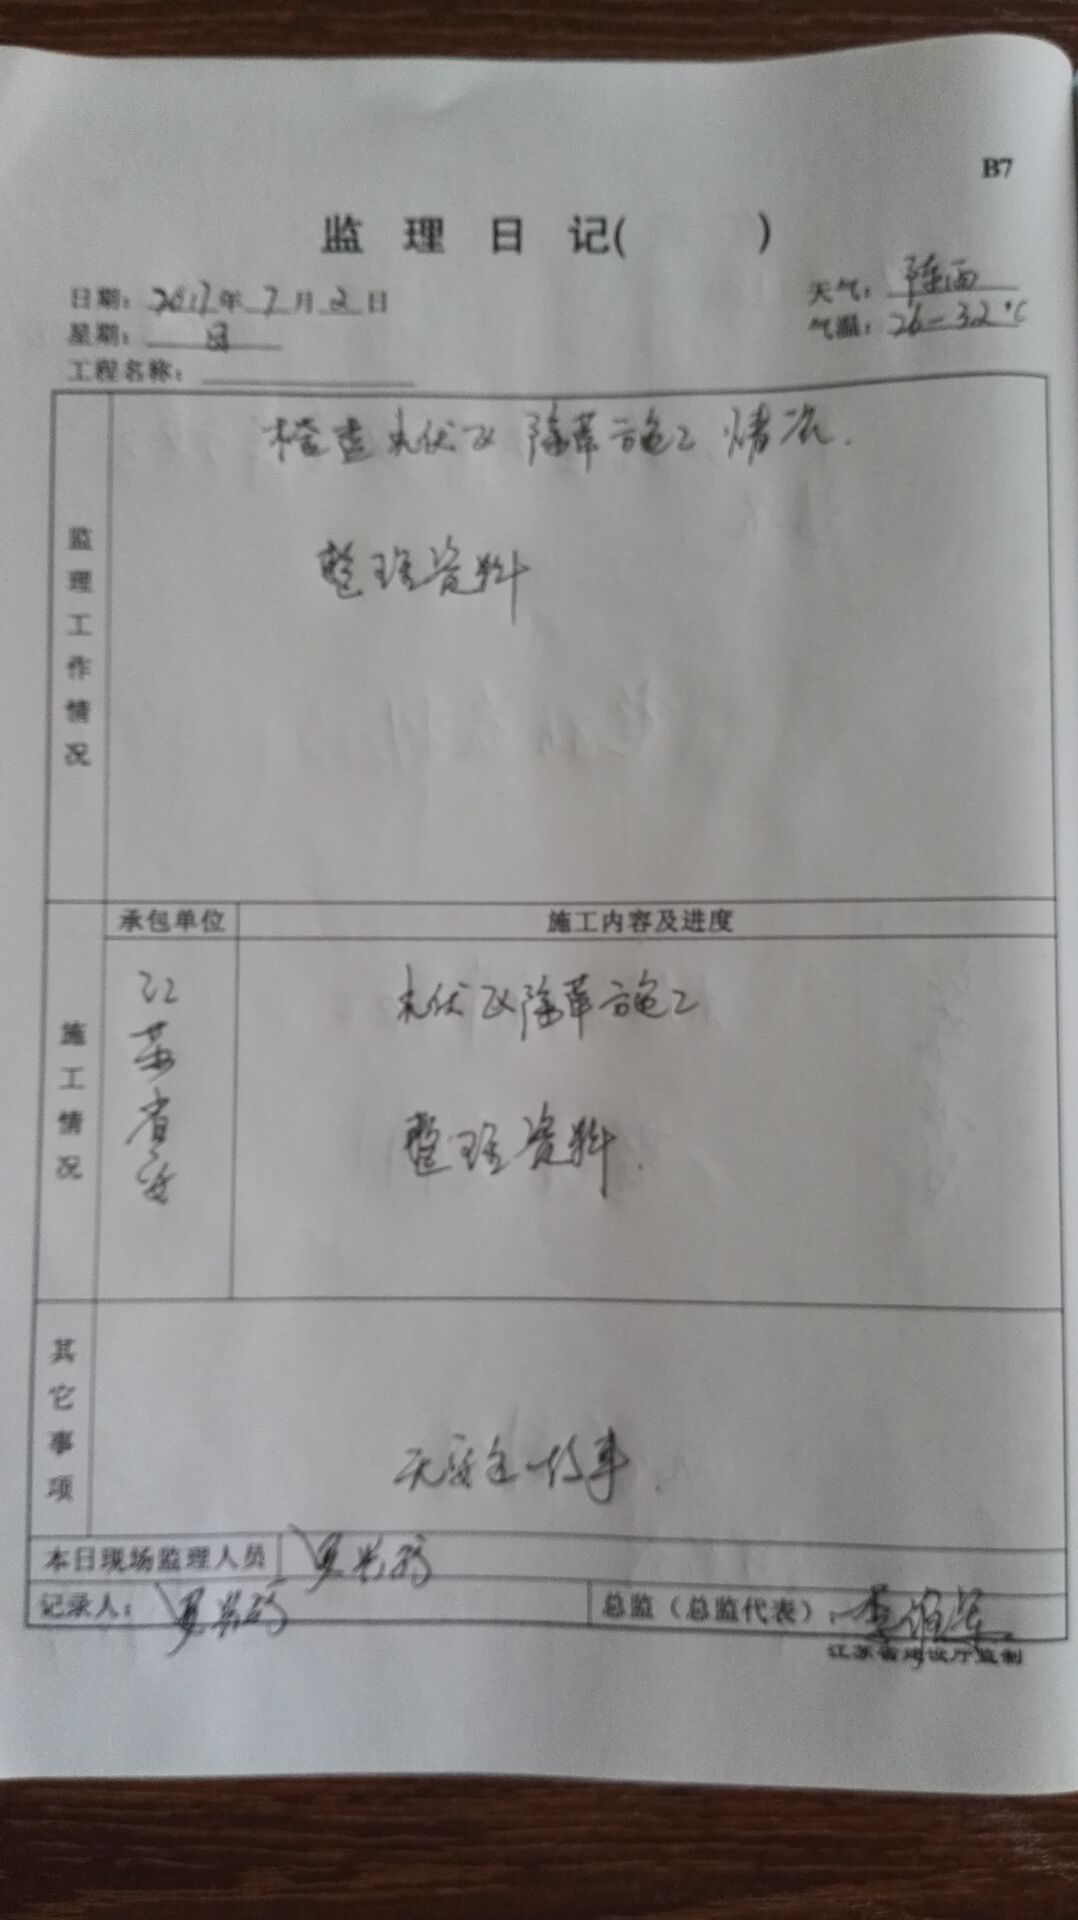 B7
监 理 日 记( )
日期：2017年 7 月 2 日
天气：阵雨
星期：日
气温：26-32℃
工程名称：
监理工作情况
检查 除草施工情况.
整理资料
承包单位
施工内容及进度
施工情况
江苏省
除草施工
整理资料.
其它事项
无安全故事.
本日现场监理人员
记录人：
总监（总监代表）：
江苏省建设厅监制